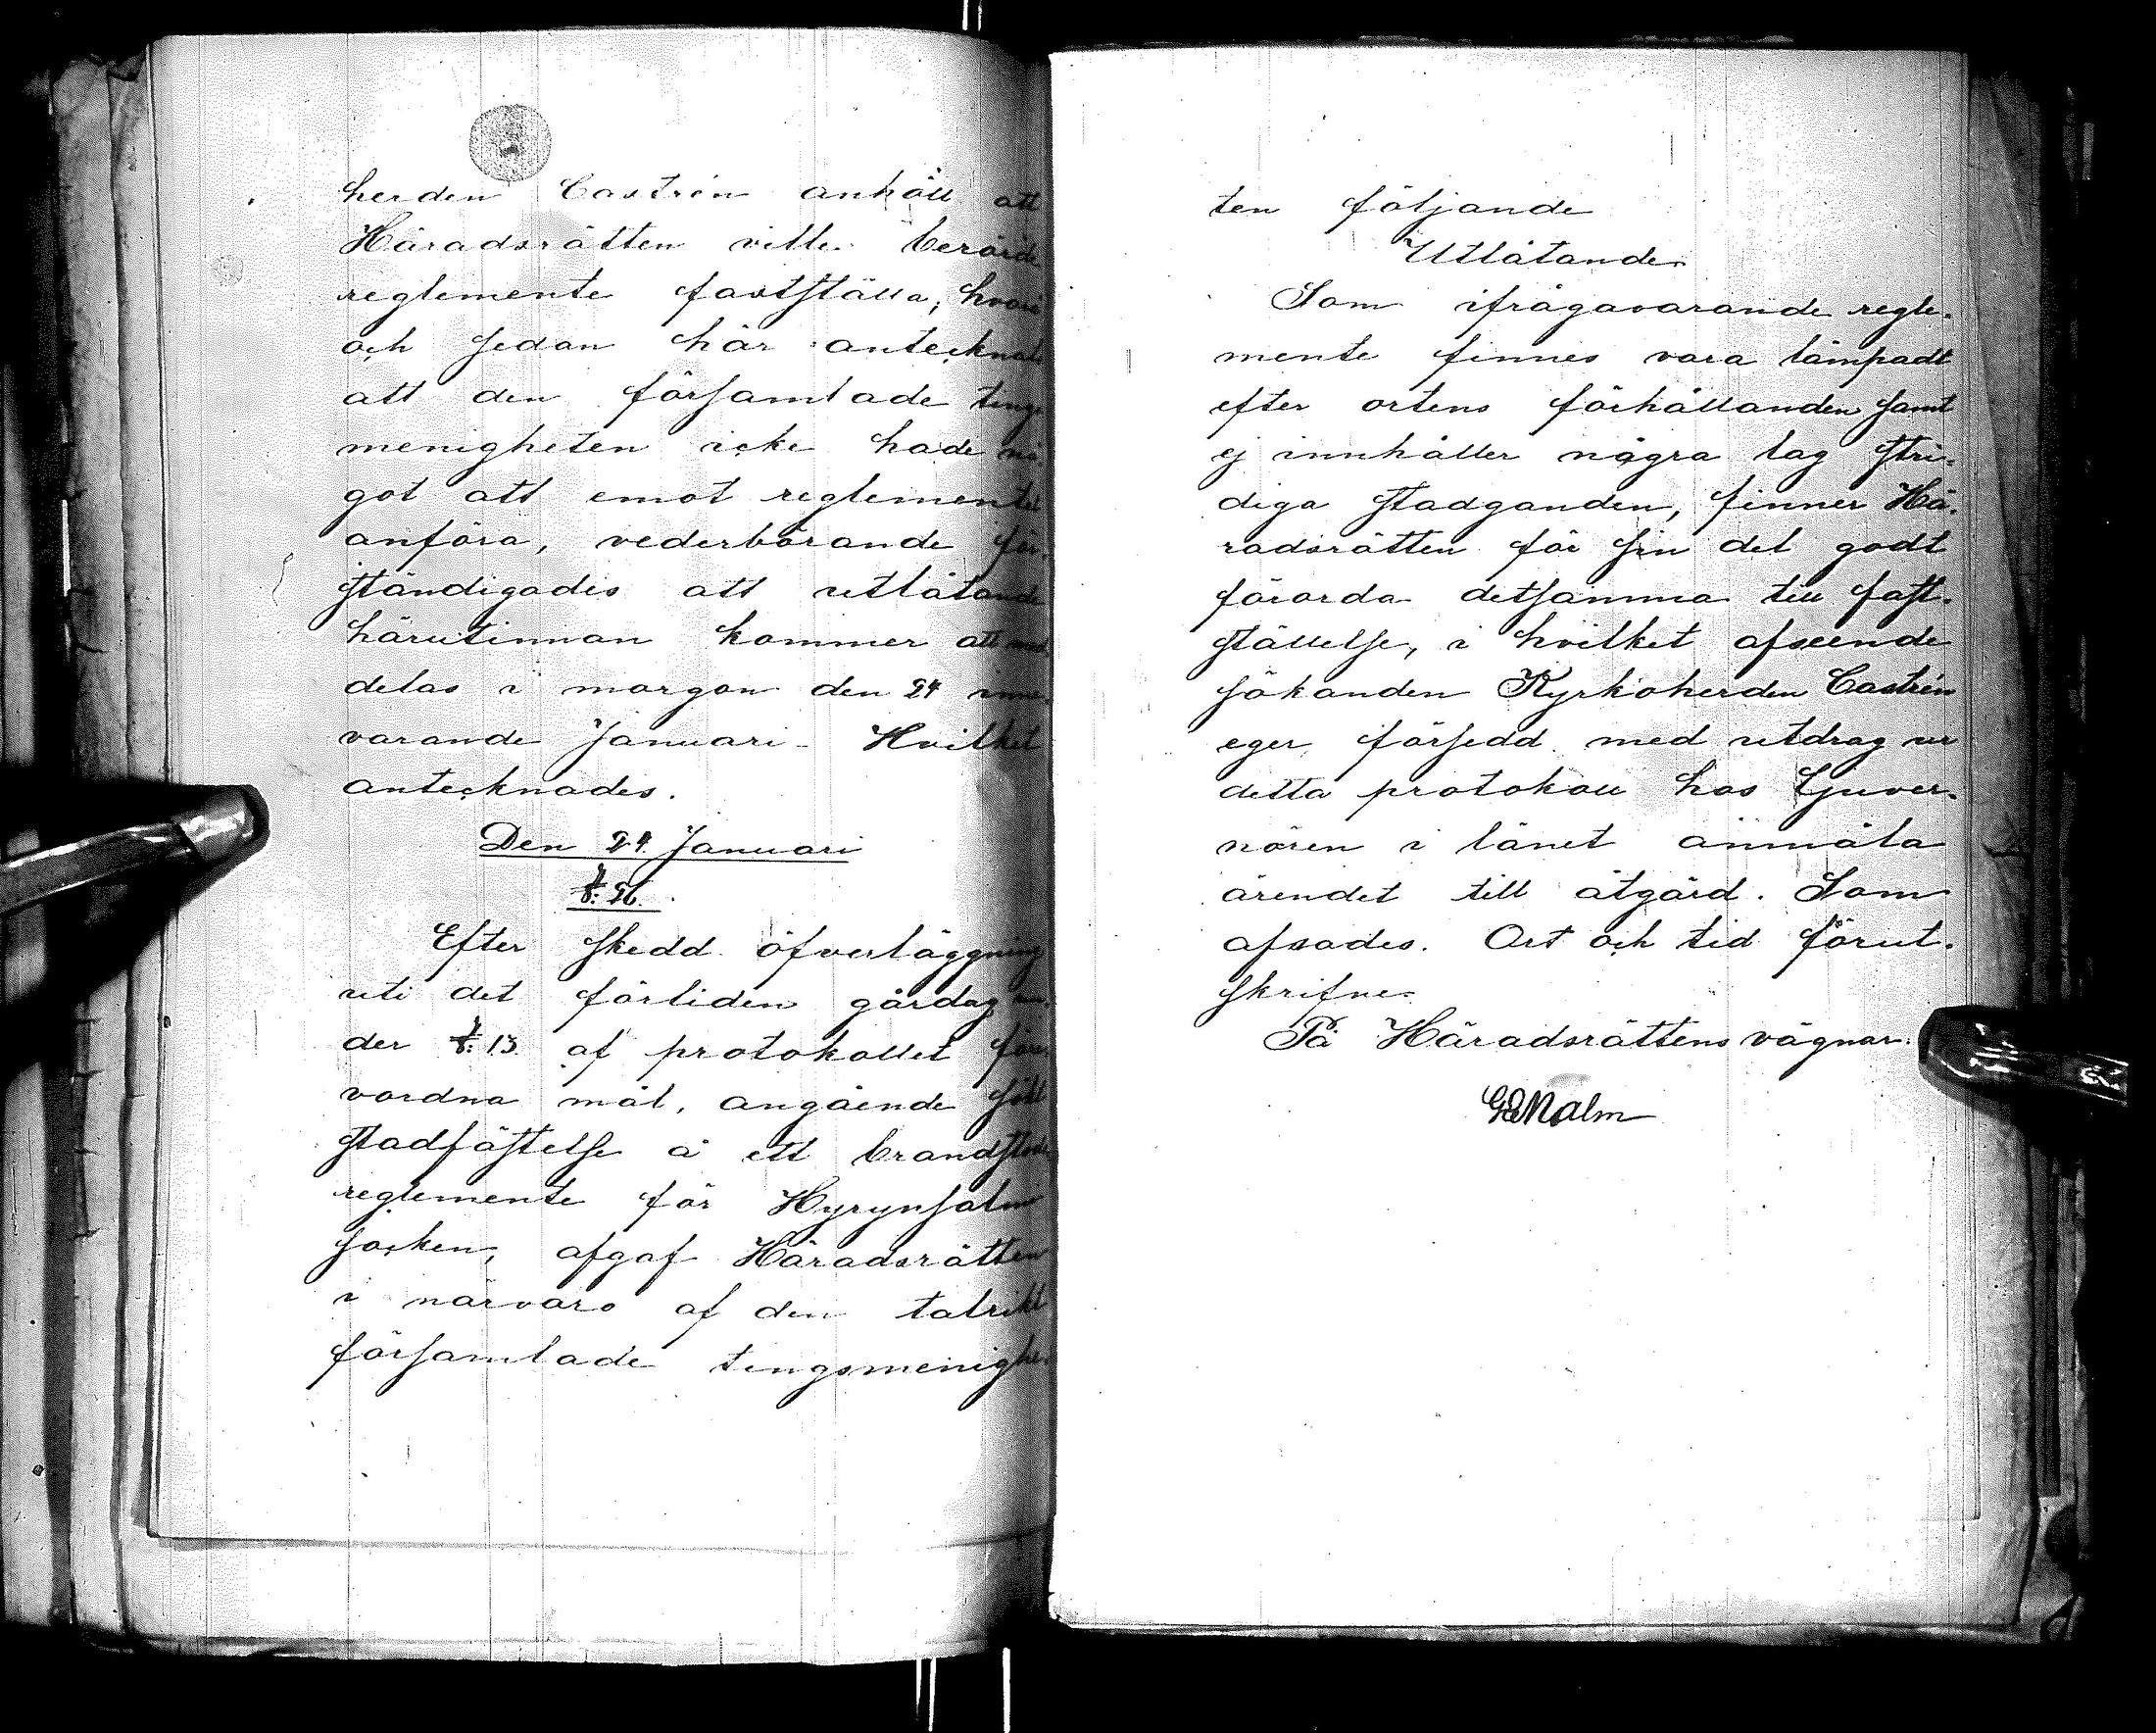 herden Castrén anhöll att
Häradsrätten ville berörde
reglemente fastställa; hvari
och sedan här antecknats
att den församlade tings
menigheten icke hade nå-
got att emot reglementet
anföra, vederbörande för-
ständigades att utlåtande
härutinnan kommer att med
delas i morgon den 24 inne-
varande Januari. Hvilket
antecknades.
Den 24. Januari
§: 26.
Efter skedd öfverläggning
uti det förliden gårdag un-
der §: 13. af protokollet före
vordna mål, angående sökt
stadfästelse å ett brandstods
reglemente för Hyrynsalmi
socken, afgaf Häradsrätten
i närvaro af den talrikt
församlade tingsmenighe-
ten följande
Utlåtande
Som ifrågavarande regle-
mente finnes vara lämpadt
efter ortens förhållanden samt
ej innhåller några lag stri-
diga stadganden, finner Hä-
radsrätten för sin del godt
förorda detsamma till fast-
ställelse, i hvilket afseende
sökanden Kyrkoherden Castrén
eger försedd med utdrag ur
detta protokoll hos Guver-
nören i länet anmäla
ärendet till åtgärd. Som
afsades. Ort och tid förut-
skrifne.
På Häradsrättens vägnar.
GEMalm